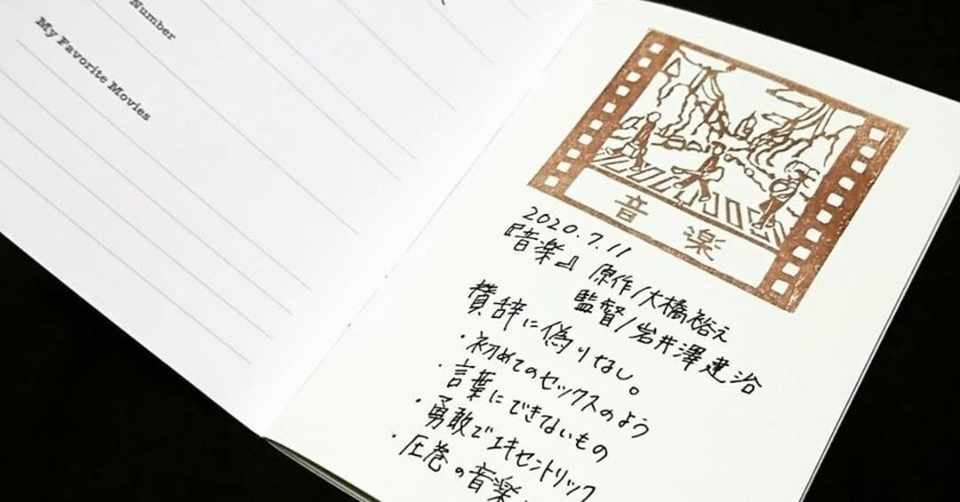 Number
My Favorite Movies
音楽
2020.7.11
『音楽』 原作/大橋裕之
監督/岩井澤健治
賛辞に偽りなし。
・初めてのセックスのよう
・言葉にできないもの
・勇敢でエキセントリック
・圧巻の音楽